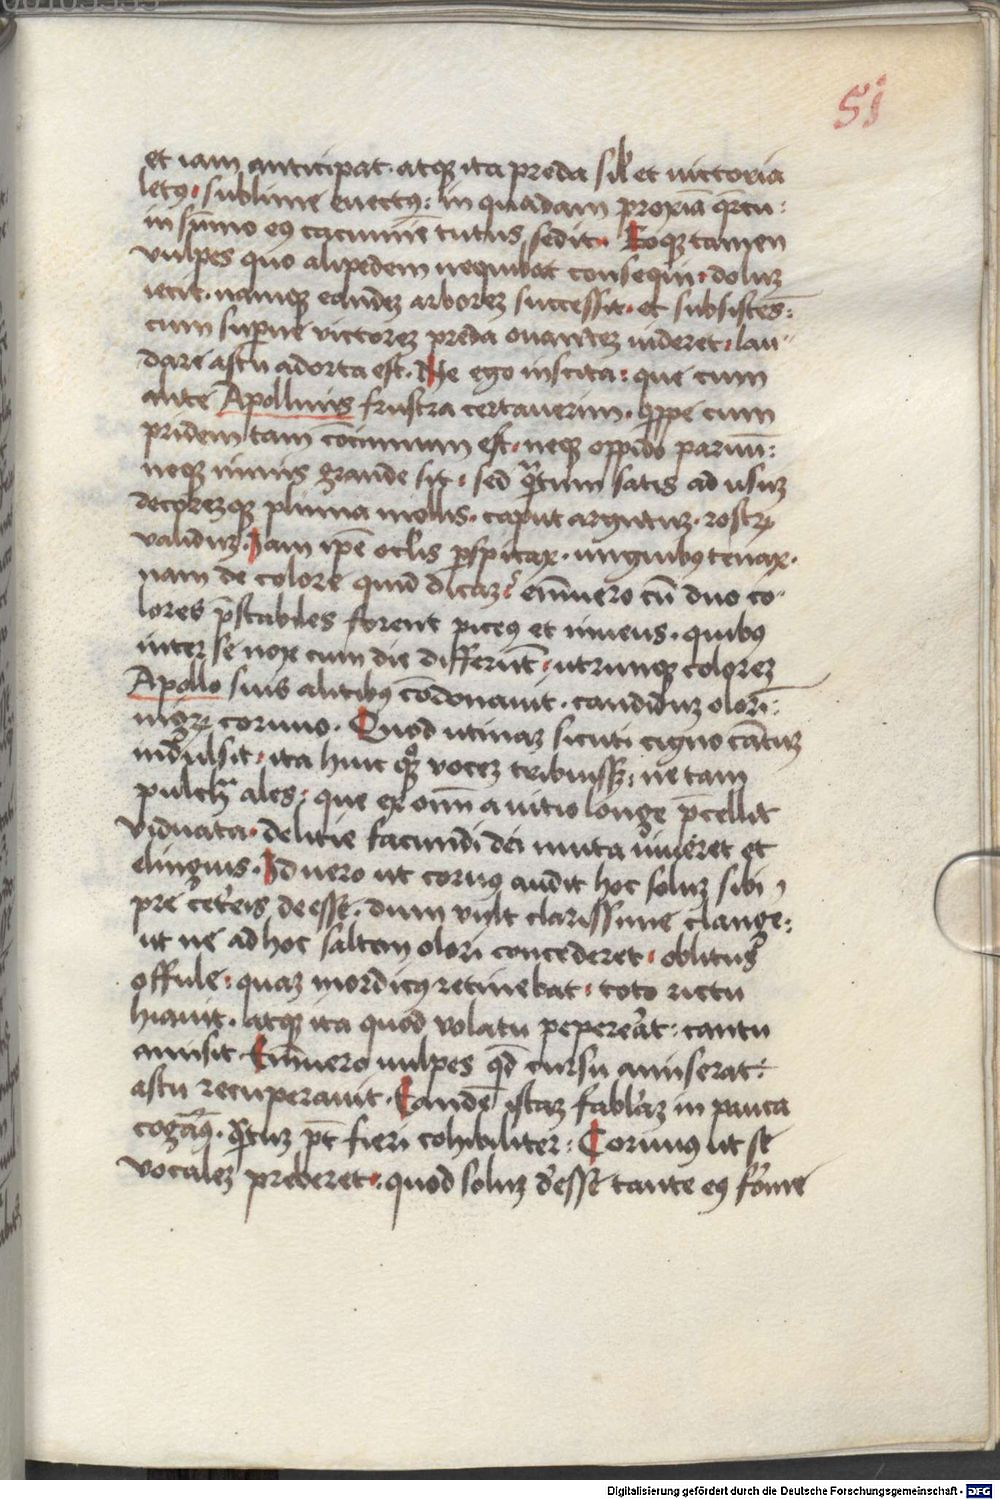 51
et iam anticipat. atqꝫ ita preda sil̄ et uictoria
letꝰ. sublime euectꝰ: in quadam proxīa q̄rcu:
in sūmo eꝰ cacumīe tutus sedit. Eoqꝫ tamen
vulpes quo alipedem nequibat consequi: doluꝫ
iecit. namqꝫ eandeꝫ arboreꝫ successit. et subsistēs:
cum sup̄ne victoreꝫ preda ouanteꝫ uideret: lau
dare astu adorta est. Ne ego inscita: que cum
alite Apollinis frustra certauerim. q̄ppe cum
pridem tam cōcinnum est. neqꝫ oppido paruū:
neqꝫ nimis grande sit: sed q̄tum satis ad usuꝫ
decoreꝫqꝫ pluma mollis. caput argutuꝫ. rostrꝝ
validuꝫ. Iam ip̄e oc̄lis p̄spicax. unguibꝰ tenax.
nam de colore quid dicaꝫ? eīuero cū duo co
lores p̄stabiles forent piceꝰ et niueus. quibꝰ
inter se nox cum die differūt: utrumqꝫ coloreꝫ
Apollo suis alitibꝰ cōdonauit. candiduꝫ olori:
nigrꝝ coruuo. Quod utinaꝫ sicuti cigno cātuꝫ
indulsit: ita huic qͦqꝫ voceꝫ tribuissꝫ: ne tam
pulchͣ ales: que ex om̄i auitio longe p̄cellit
viduata. delitie facundi dei muta uiueret et
elinguis. Id uero ut coruꝰ audit hoc soluꝫ sibi
pre ceteris deesse. dum vult clarissime clange:
ut ne ad hoc saltem olori concederet: oblitus
offule: quaꝫ mordicꝰ retinebat: toto rictu
hiauit. atqꝫ ita quod volatu pepereat: cantu
amisit. Eīmuero uulpes qd̄ cursu amiserat:
astu recuperauit. Eandē istaꝫ fablaꝫ in pauca
cogāꝰ. q̄tuꝫ p̄t fieri cohibiliter: Coruuꝰ ut se
vocaleꝫ prederet: quod soluꝫ deesse tante eꝰ forme
Digitalisierung gefördert durch die Deutsche Forschungsgemeinschaft - DFG